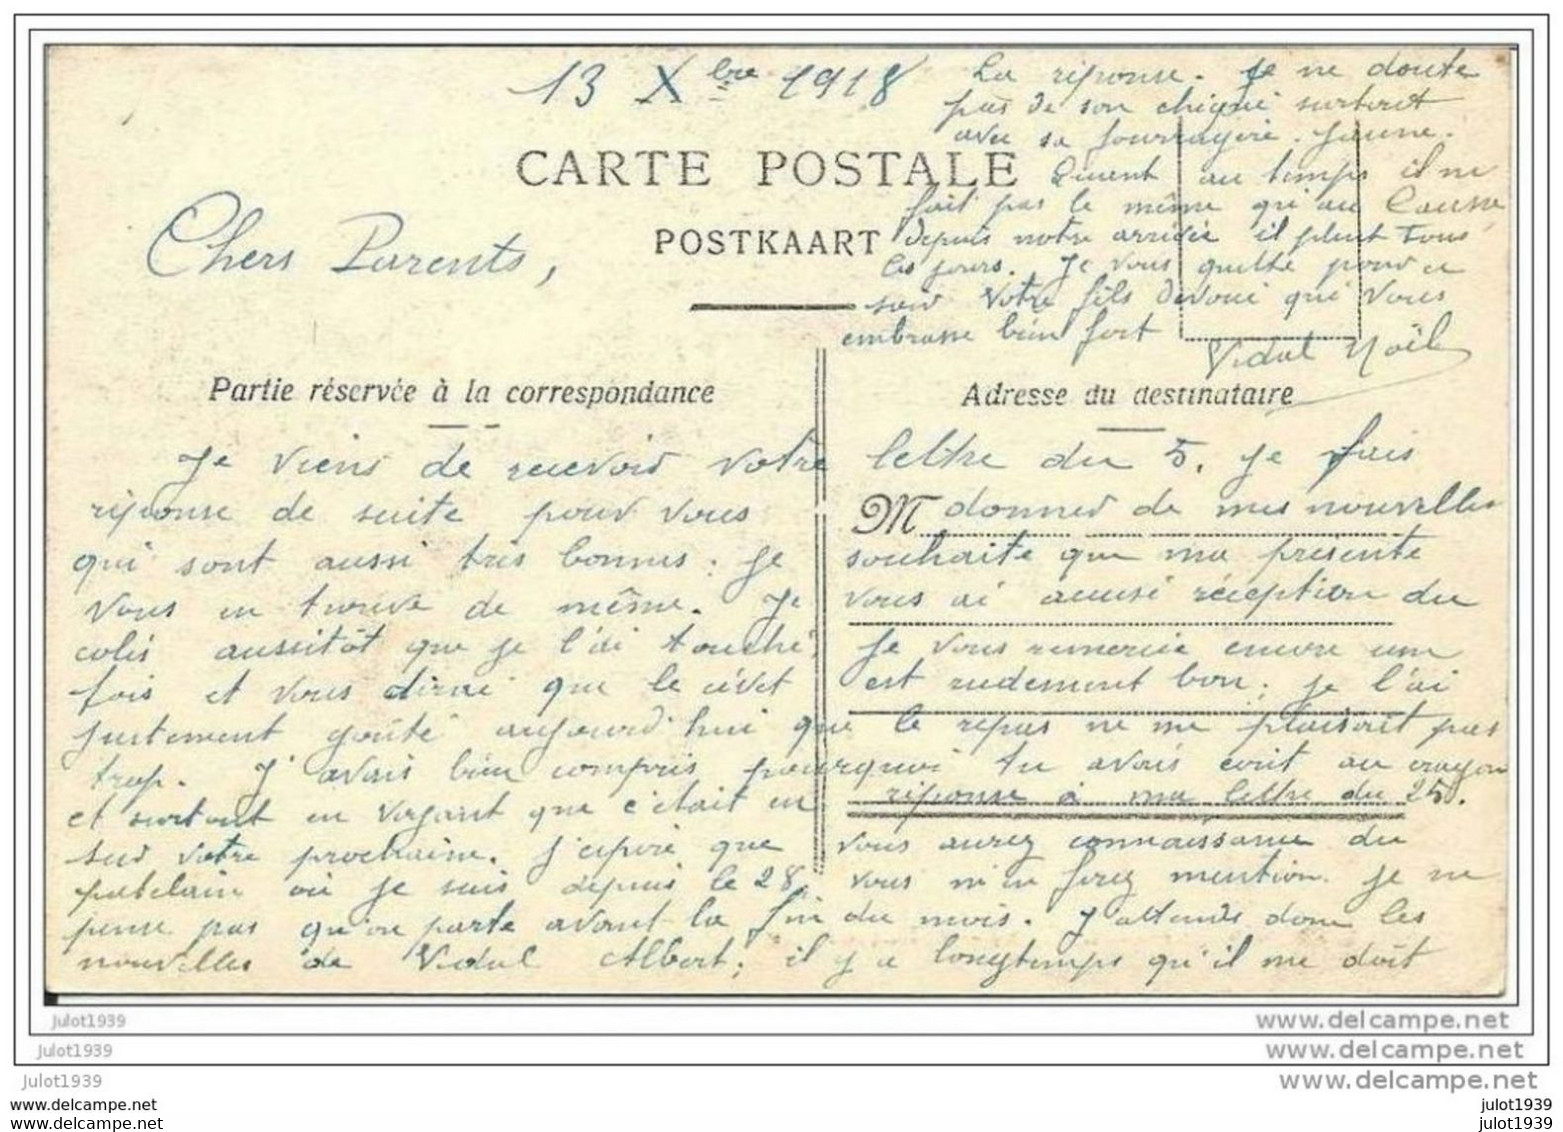 13 Xbre 1918
CARTE POSTALE
POSTKAART
Chers Parents,
Partie réservée à la correspondance
Adresse du destinataire
Je viens de recevoir votre lettre du 5. Je fais
réponse de suite pour vous donner de mes nouvelles
M
qui sont aussi très bonnes : je souhaite que ma présente
vous en trouve de même. Je vous ai accusé réception du
colis aussitôt que je l'ai touché, Je vous remercie encore une
fois et vous dirai que le civet est rudement bon ; je l'ai
justement goûté aujourd'hui que le repas ne me plaisait pas
trop. J'avais bien compris pourquoi tu avais écrit au crayon
et surtout en voyant que c'était en réponse à ma lettre du 25.
sur votre prochaine. J'espère que vous aurez connaissance du
patelain où je suis depuis le 28, vous m'en ferez mention. Je ne
pense pas qu'on parte avant la fin du mois. J'attends donc les
nouvelles de Vidal Albert ; il y a longtemps qu'il me doit
La réponse. Je ne doute
pas de son chiqué surtout
avec sa fourragère jaune.
Quant au temps il ne
fait pas le même qu'au Causse
depuis notre arrivée il pleut tous
les jours. Je vous quitte pour ce
soir Votre fils dévoué qui vous
embrasse bien fort
Vidal Noël
julot1939
www.delcampe.net
julot1939
www.delcampe.net
julot1939
www.delcampe.net
julot1939
www.delcampe.net
julot1939
www.delcampe.net
julot1939